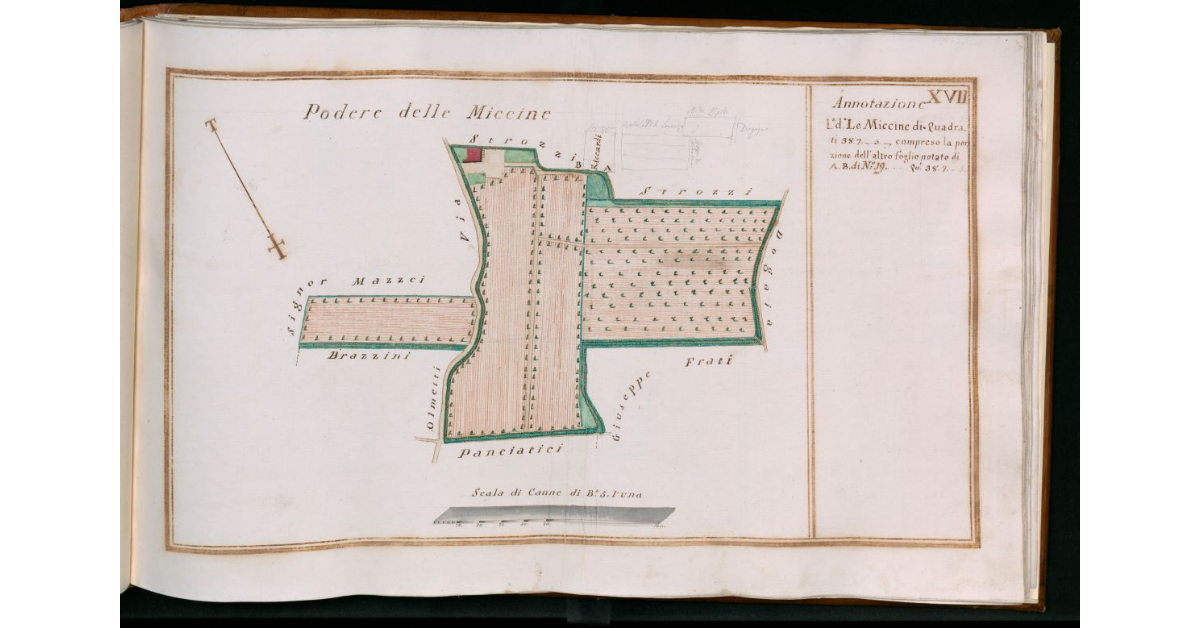 Podere delle Miccine
T
Strozzi
B A
Riccardi
Strozzi
Via
Dogaia
Signor Mazzei
Brazzini
Olmetti
Frati
Giuseppe
Panciatici
Scala di Canne di Ba. 5. l'una
XVII
Annotazione
Le Miccine di Quadra
ti 387. compreso la por
zione dell'altro foglio notato di
A. B. di No. 19. 387.